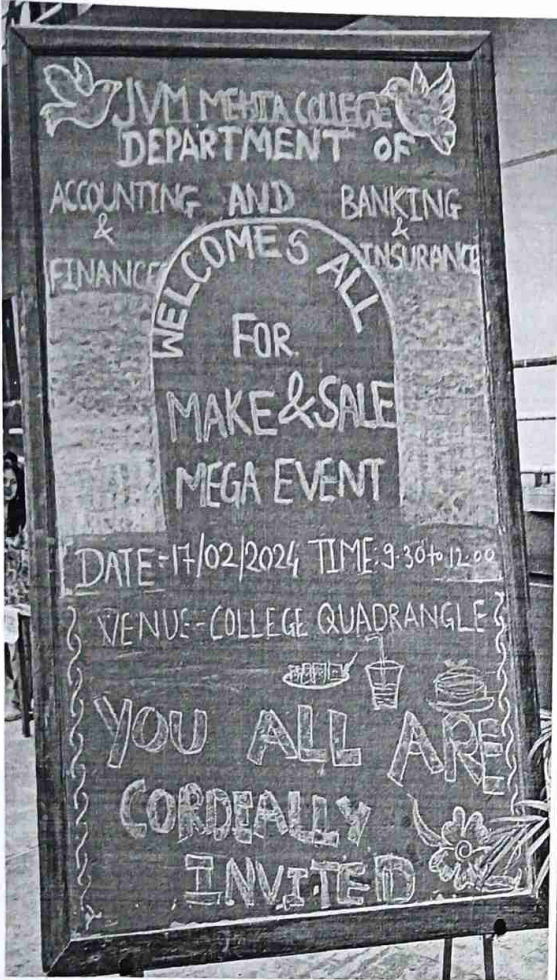 JVM MEHTA COLLEGE
DEPARTMENT OF
ACCOUNTING AND BANKING
& &
FINANCE INSURANCE
WELCOMES ALL
FOR
MAKE & SALE
MEGA EVENT
DATE-17/02/2024 TIME:9-30 to 12.00
VENUE-COLLEGE QUADRANGLE
YOU ALL ARE
CORDEALLY
INVITED